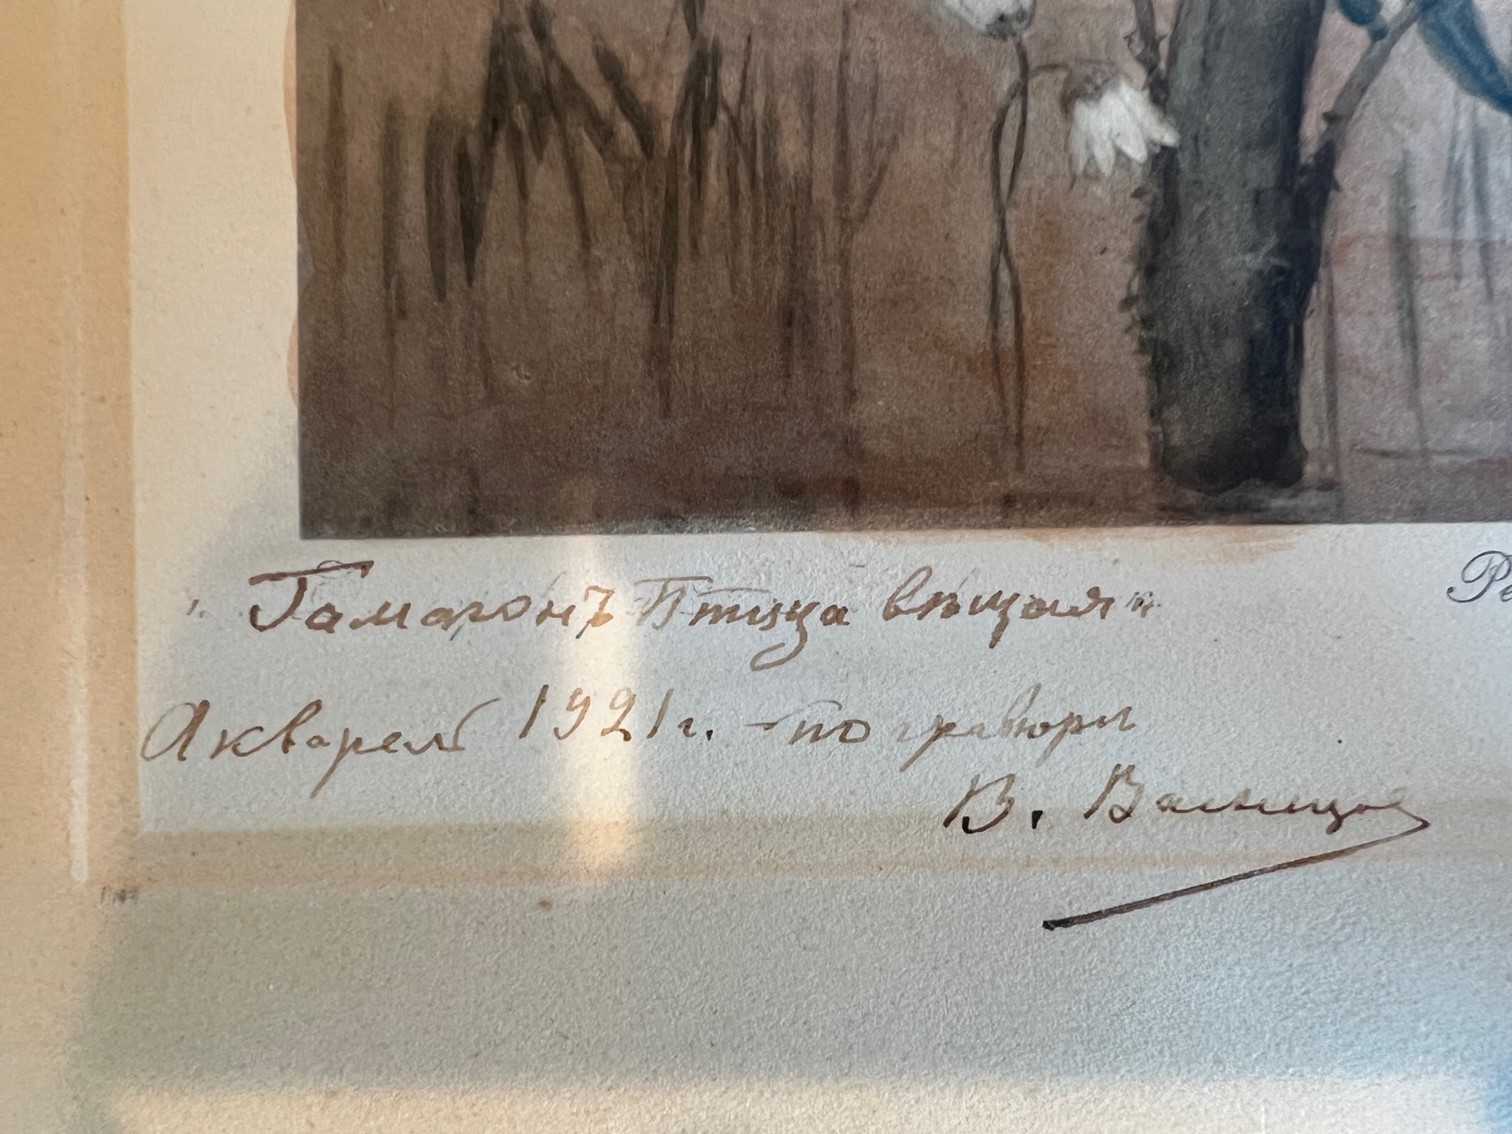 „Гамаюнъ Птица вѣщая“
Акварель 1921 г. – по гравюры
В. Васнецов
Ре